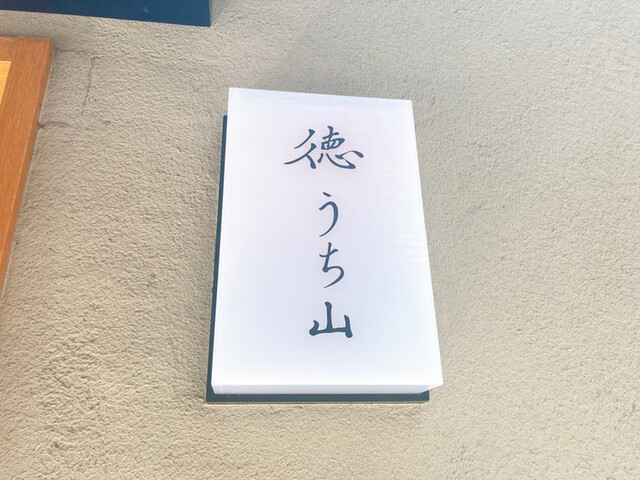 徳うち山